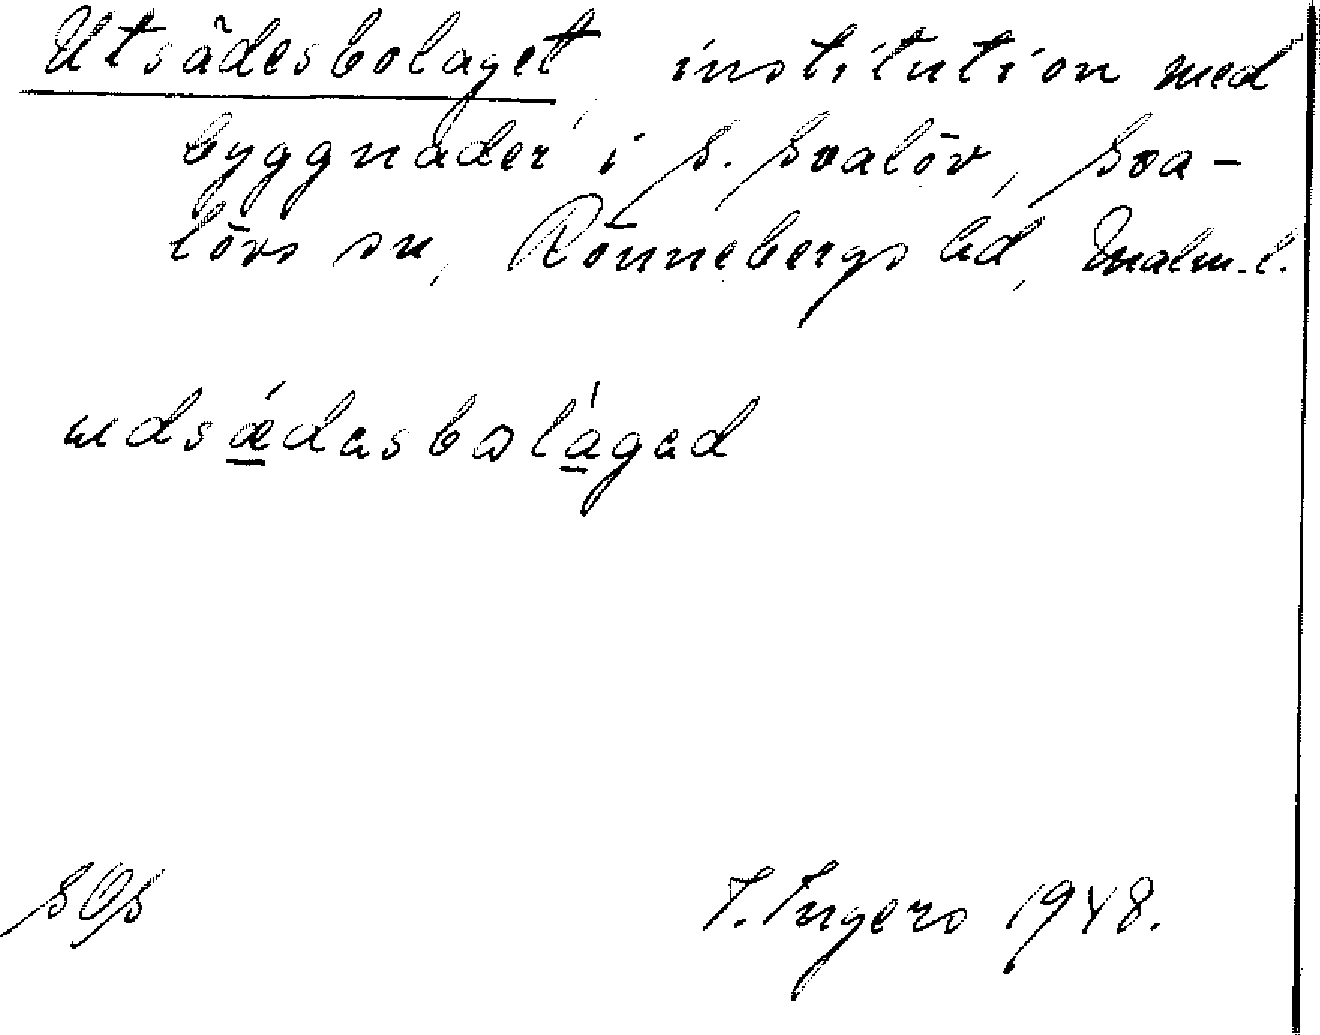 Utsädesbolaget, institution med
byggnader i S. Svalöv, Sva-
lövs sn, Rönnebergs hd, Malm. l.
udsǽ̠dasbolá̠gad
SOS
I. Ingers 1948.